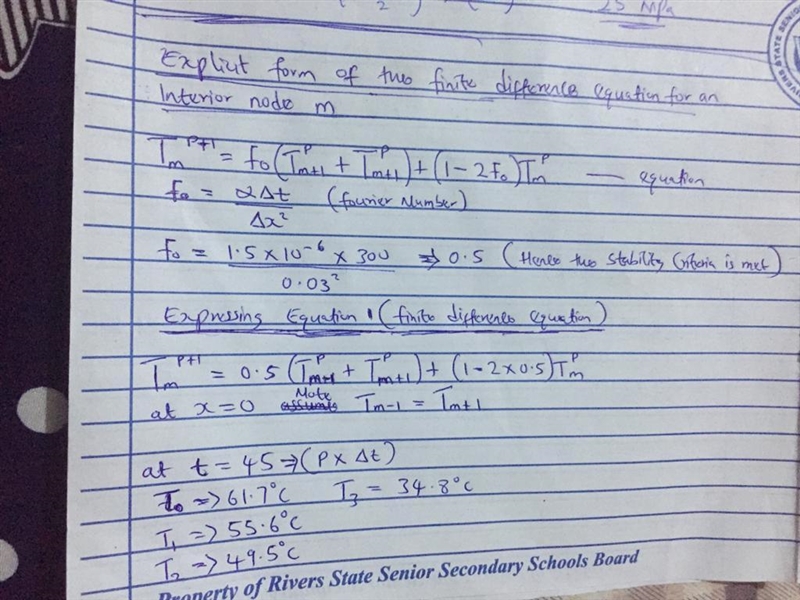 2
25 MPa
RIVERS STATE SENIOR
Explicit form of two finite difference equation for an
Interior node m
T_m^{P+1} = fo(T_{m+1}^P + T_{m+1}^P) + (1 - 2F₀)T_m^P — equation
f₀ = αΔt / Δx² (fourier Number)
f₀ = 1.5 × 10⁻⁶ × 300 / 0.03² ⇒ 0.5 (Hence two stability Criteria is met)
Expressing Equation 1 (finite difference equation)
T_m^{P+1} = 0.5 (T_{m-1}^P + T_{m+1}^P) + (1 - 2 × 0.5)T_m^P
at x = 0 Note T_{m-1} = T_{m+1}
at t = 45 ⇒ (P × Δt)
T₀ ⇒ 61.7°C T₃ = 34.8°C
T₁ ⇒ 55.6°C
T₂ ⇒ 49.5°C
Property of Rivers State Senior Secondary Schools Board